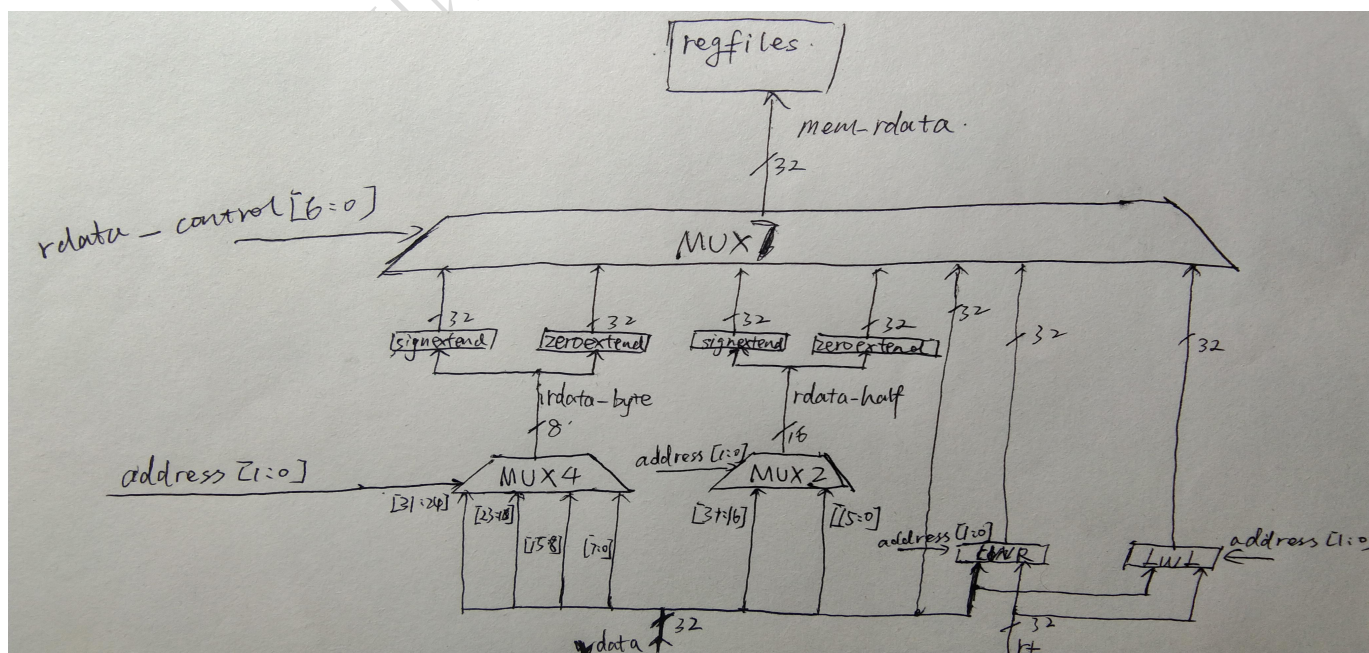 regfiles.
mem_rdata.
32
rdata_control[6:0]
MUX7
32 32 32 32 32 32 32
signextend zeroextend signextend zeroextend
rdata-byte rdata-half
8 16
address[1:0] MUX4 address[1:0] MUX2
[31:24] [23:18] [15:8] [7:0] [31:16] [15:0]
address[1:0] LWR LWL address[1:0]
32 32
rdata rt